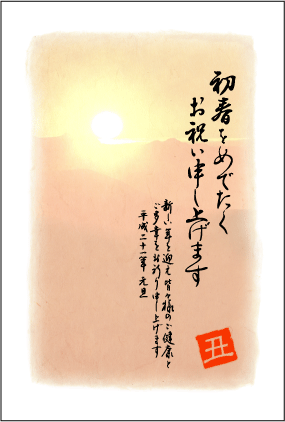 初春をめでたく
お祝い申し上げます
新しい年を迎え皆々様のご健康と
ご多幸をお祈り申し上げます
平成二十一年 元旦
丑